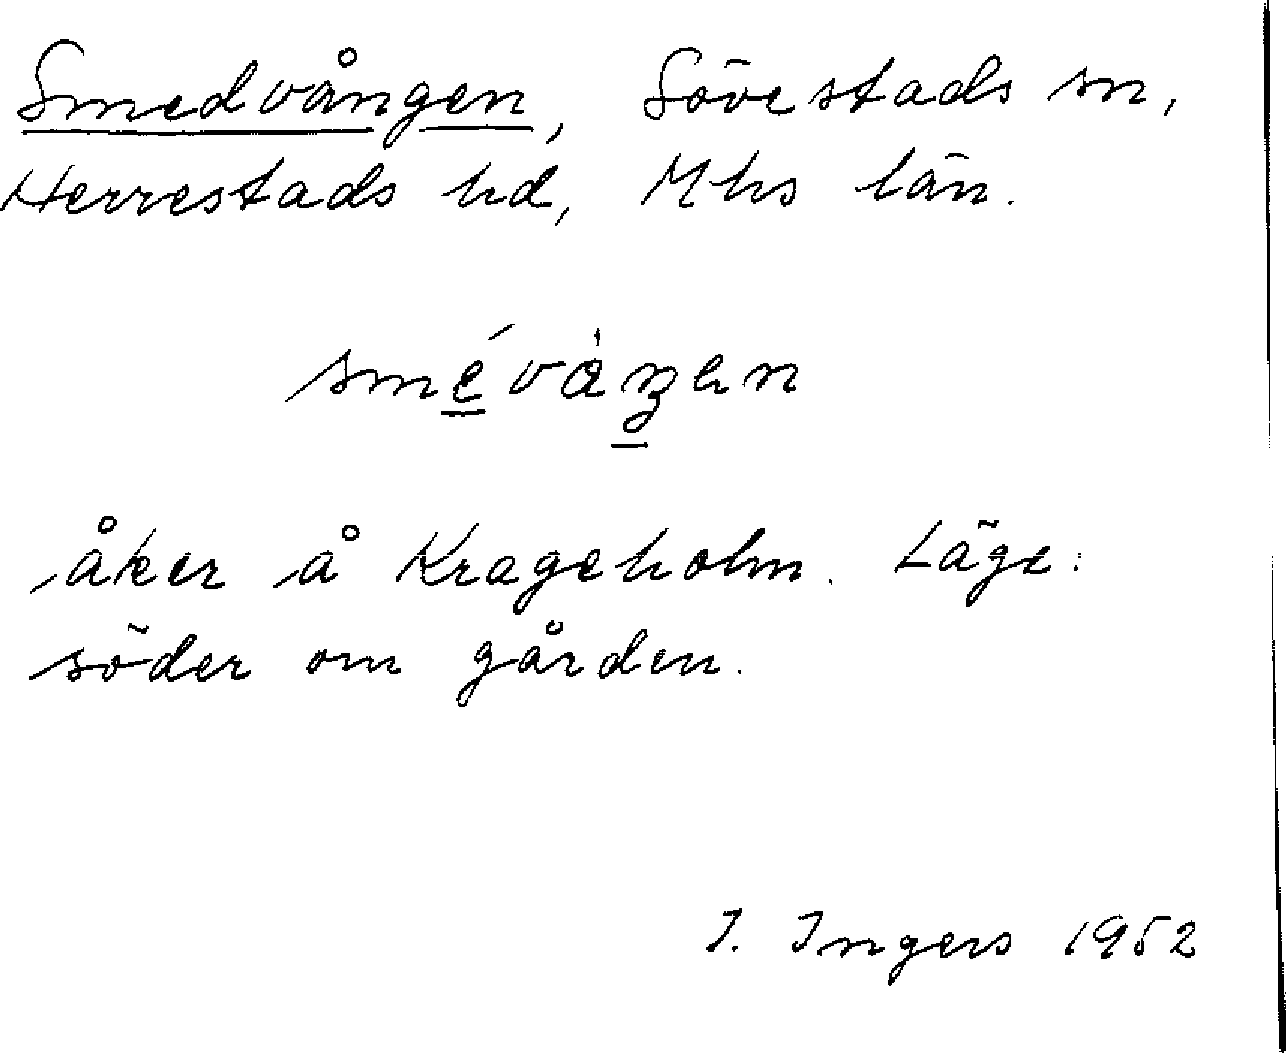 Smedvången, Sövestads sn,
Herrestads hd, Mhs län.
smévàŋen
åker å Krageholm. Läge:
söder om gården.
I. Ingers 1952